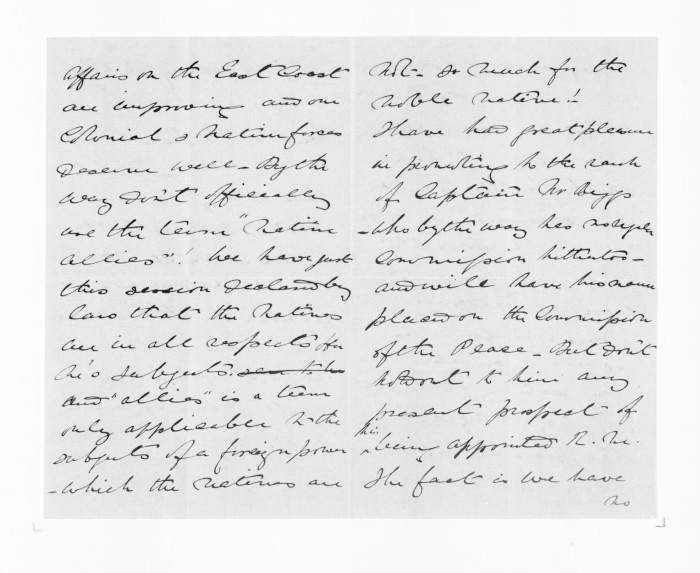 affairs on the East Coast
are improving and our
Colonial & Native forces
deserve well - By the
way don't officially
use the term "native
allies"! We have just
this session declared by
law that the natives
are in all respects Her
M's subjects.
and "allies" is a term
only applicable to the
subjects of a foreign power
- which the natives are
not - so much for the
noble native!-
I have had great pleasure
in promoting to the rank
of Captain Mr Biggs
- who by the way has no
Commission hitherto -
and will have his name
placed on the Commission
of the Peace - But don't
hold out to him any
present prospect of
his being appointed R. M.
The fact is we have
no